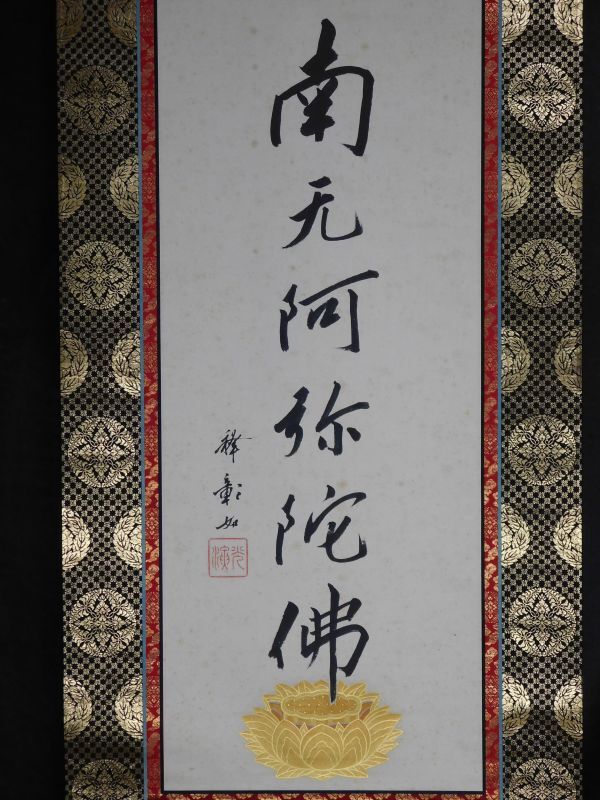 南无阿弥陀佛
釋彰如
光演